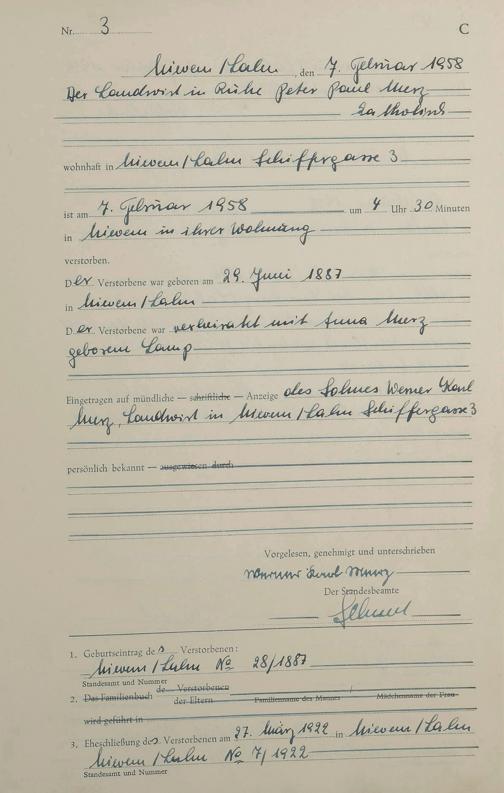 Nr. 3 C
Nievern/Lahn, den 7. Februar 1958
Der Landwirt in Ruhe Peter Paul Merz
katholisch
wohnhaft in Nievern/Lahn Schiffergasse 3
ist am 7. Februar 1958 um 4 Uhr 30 Minuten
in Nievern in ihrer Wohnung
verstorben.
Der Verstorbene war geboren am 29. Juni 1887
in Nievern/Lahn
Der Verstorbene war verheiratet mit Anna Merz
geborene Lamp
Eingetragen auf mündliche — schriftliche — Anzeige des Sohnes Werner Karl
Merz, Landwirt in Nievern/Lahn Schiffergasse 3
persönlich bekannt — ausgewiesen durch
Vorgelesen, genehmigt und unterschrieben
Werner Karl Merz
Der Standesbeamte
1. Geburtseintrag des Verstorbenen:
Nievern/Lahn No 28/1887
Standesamt und Nummer
2. Das Familienbuch de Verstorbenen
der Eltern Familienname des Mannes / Mädchenname der Frau
wird geführt in
3. Eheschließung des Verstorbenen am 27. März 1922 in Nievern/Lahn
Nievern/Lahn No 7/1922
Standesamt und Nummer